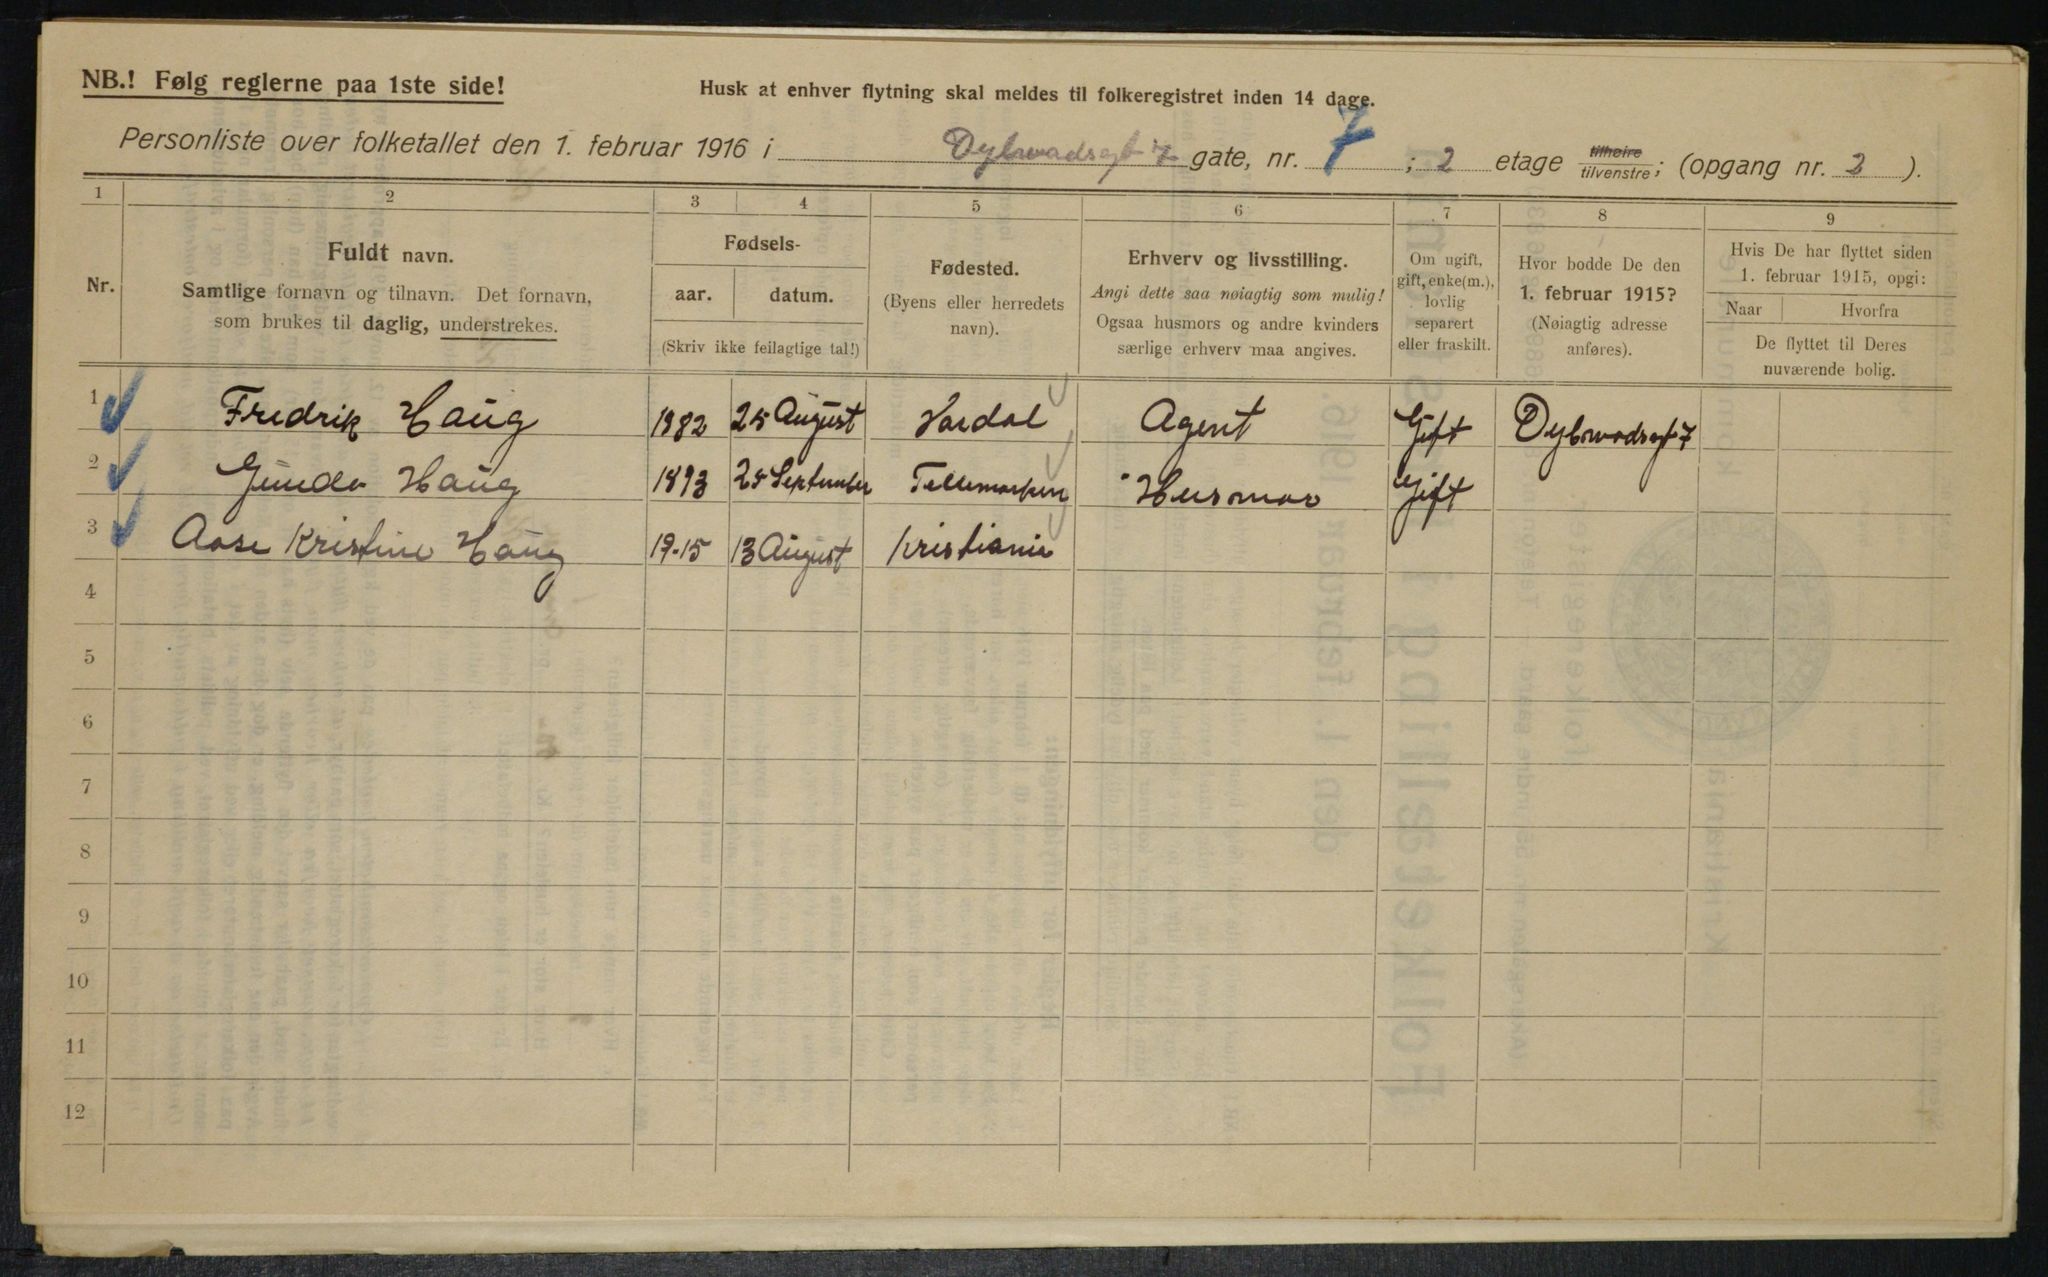 NB.! Følg reglerne paa 1ste side!
Husk at enhver flytning skal meldes til folkeregistret inden 14 dage.
Personliste over folketallet den 1. februar 1916 i Dybwadsgt 7 gate, nr. 7 ; 2 etage tilheire/tilvenstre; (opgang nr. 2 ).
1 2 3 4 5 6 7 8 9
Nr.
Fuldt navn.
Samtlige fornavn og tilnavn. Det fornavn,
som brukes til daglig, understrekes.
Fødsels-
aar. datum.
(Skriv ikke feilagtige tal!)
Fødested.
(Byens eller herredets
navn).
Erhverv og livsstilling.
Angi dette saa nøiagtig som mulig!
Ogsaa husmors og andre kvinders
særlige erhverv maa angives.
Om ugift,
gift, enke(m.),
lovlig
separert
eller fraskilt.
Hvor bodde De den
1. februar 1915?
(Nøiagtig adresse
anføres).
Hvis De har flyttet siden
1. februar 1915, opgi:
Naar Hvorfra
De flyttet til Deres
nuværende bolig.
1 Fredrik Haug 1882 25 August Vardal Agent Gift Dybwadsgt 7
2 Gunda Haug 1893 25 September Tellemarken Husmor Gift
3 Aase Kristine Haug 19-15 13 August Kristiania
4
5
6
7
8
9
10
11
12